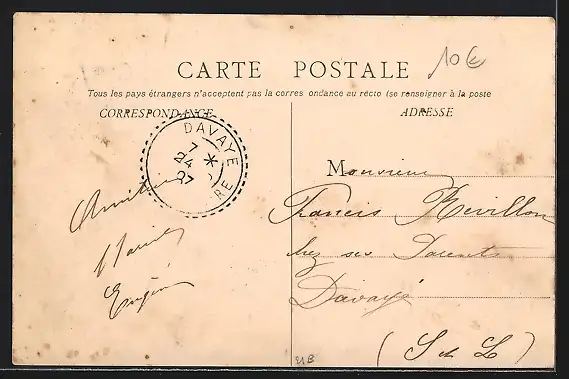 CARTE POSTALE
10€
Tous les pays étrangers n'acceptent pas la corres ondance au recto (se renseigner à la poste
CORRESPONDANCE
ADRESSE
DAVAYE
7
24
07
RE
Monsieur
Francis Revillon
chez ses Parents
Davayé
(S et L)
Eugène